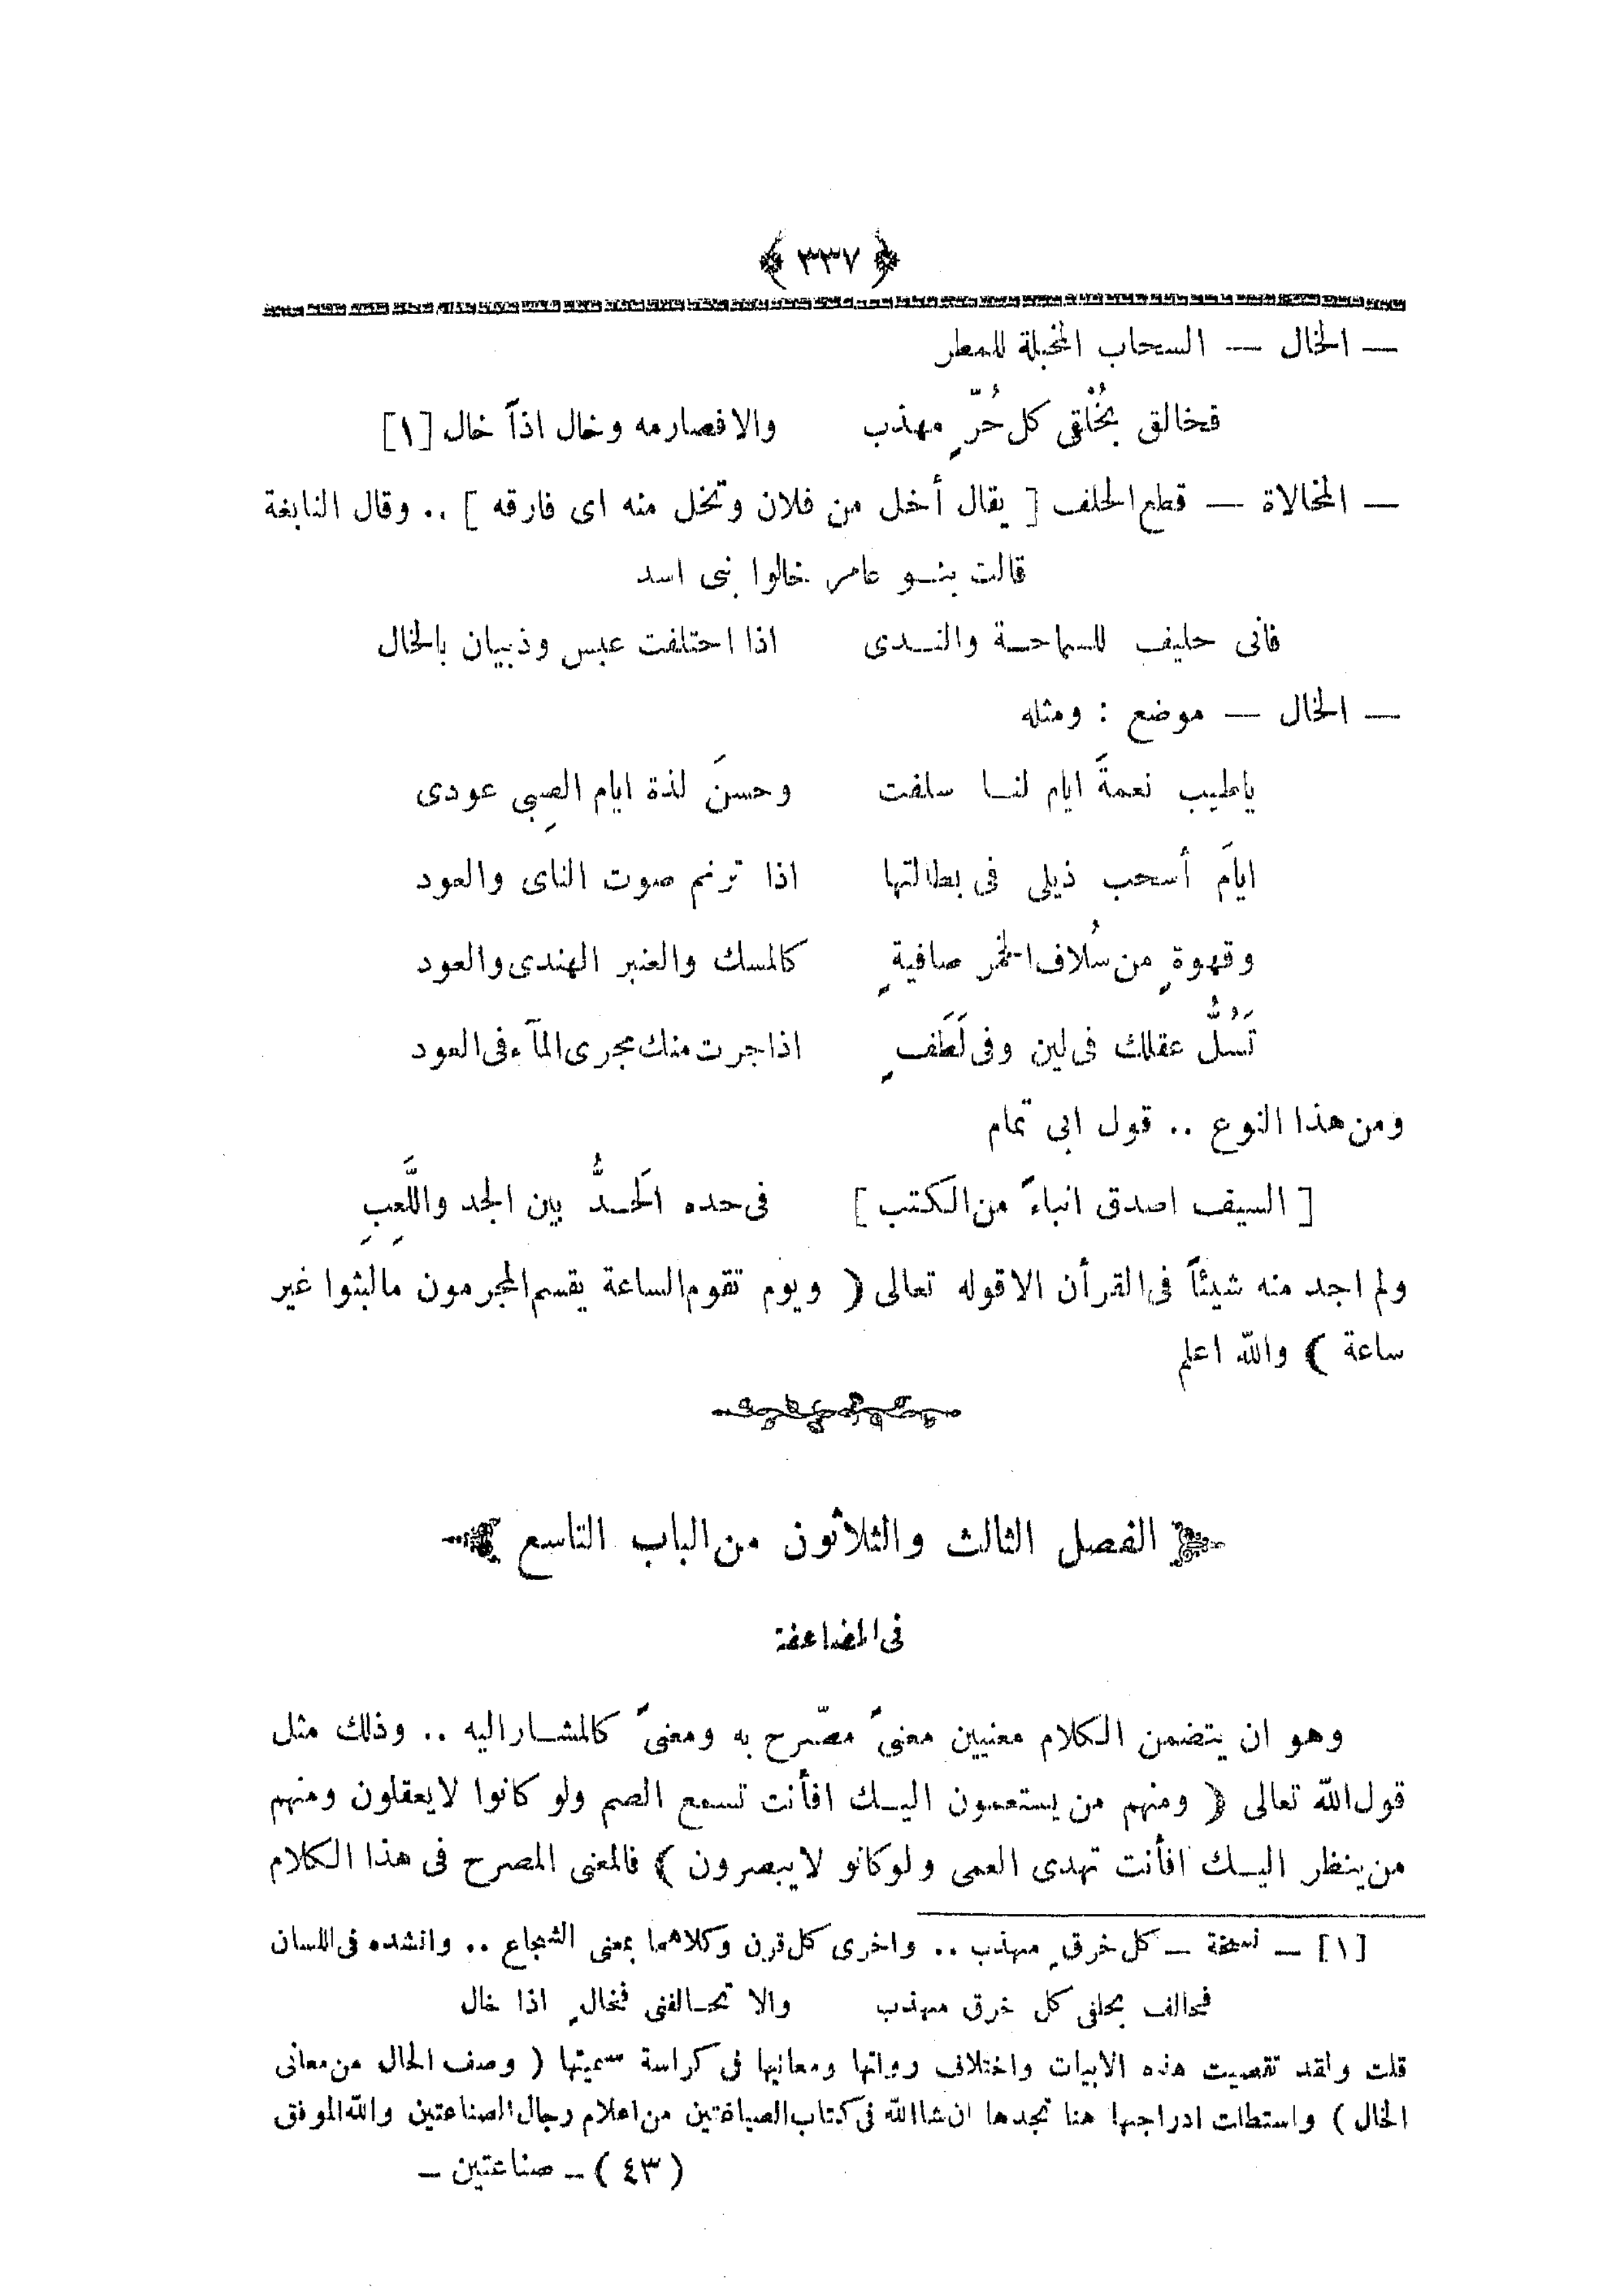 ﴿ ٣٣٧ ﴾
— الخال — السحاب المخيلة للمطر
فخالق بخُلْقى كل حُرّ مهذب والا فصارمه وخال اذاً خال [١]
— المخالاة — قطع الحلف [ يقال أخل من فلان وتخل منه اى فارقه ] .. وقال النابغة
قالت بنو عامر خالوا بنى اسد
فانى حليف للسماحة والندى اذا احتلفت عبس وذبيان بالخال
— الخال — موضع : ومثله
ياطيب نعمةَ ايام لنا سلفت وحسنَ لذة ايام الصِبى عودى
ايامَ أسحب ذيلى فى بطالتها اذا ترنم صوت الناى والعود
وقهوةٍ من سُلاف الخمر صافيةٍ كالمسك والعنبر الهندى والعود
تَسُلُّ عقلك فى لين وفى لَطَفٍ اذا جرت منك مجرى المآء فى العود
ومن هذا النوع .. قول ابى تمام
[ السيف اصدق انباءً من الكتب ] فى حده الَحدُّ بين الجد واللَّعِبِ
ولم اجد منه شيئاً فى القرأن الا قوله تعالى ﴿ ويوم تقوم الساعة يقسم المجرمون مالبثوا غير
ساعة ﴾ والله اعلم
الفصل الثالث والثلاثون من الباب التاسع
فى المضاعفة
وهو ان يتضمن الكلام معنيين معنىً مصّرح به ومعنىً كالمشار اليه .. وذلك مثل
قول الله تعالى ﴿ ومنهم من يستمعون اليك افأنت تسمع الصم ولو كانوا لايعقلون ومنهم
من ينظر اليك افأنت تهدى العمى ولو كانو لايبصرون ﴾ فالمعنى المصرح فى هذا الكلام
[١] — نسخة — كل خرقٍ مهذب .. واخرى كل قرن وكلاهما بمعنى الشجاع .. وانشده فى اللسان
فحالف بحلفى كل خرق مهذب والا تحالفنى فخالٍ اذا خال
قلت ولقد تقصيت هذه الابيات واختلاف رواتها ومعانيها فى كراسة سميتها ( وصف الحال من معانى
الخال ) واستطلت ادراجها هنا تجدها ان شاالله فى كتاب الصياغتين من اعلام رجال الصناعتين والله الموفق
( ٤٣ ) — صناعتين —